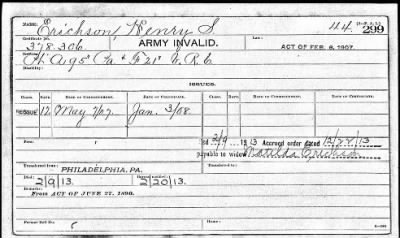 Erichson, Henry S. 44 (3-P. 2.)
Certificate No. 299
378306 ARMY INVALID. ACT OF FEB. 6, 1907.
H. A. 95" Pa. & F 21" V. R. C
Disability:
ISSUES.
CLASS. RATE. DATE OF COMMENCEMENT. DATE OF CERTIFICATE. CLASS. RATE. DATE OF COMMENCEMENT. DATE OF CERTIFICATE.
REISSUE 12 May 7/07 Jan. 3/08
Died 2/9 1913 Accrued order dated 12/22/13
payable to widow Matilda Erichson
Transferred from Transferred to
PHILADELPHIA, PA.
Died:
2/9/13. 2/20/13.
REMARKS:
From ACT OF JUNE 27, 1890.
Former Roll No. HOME: